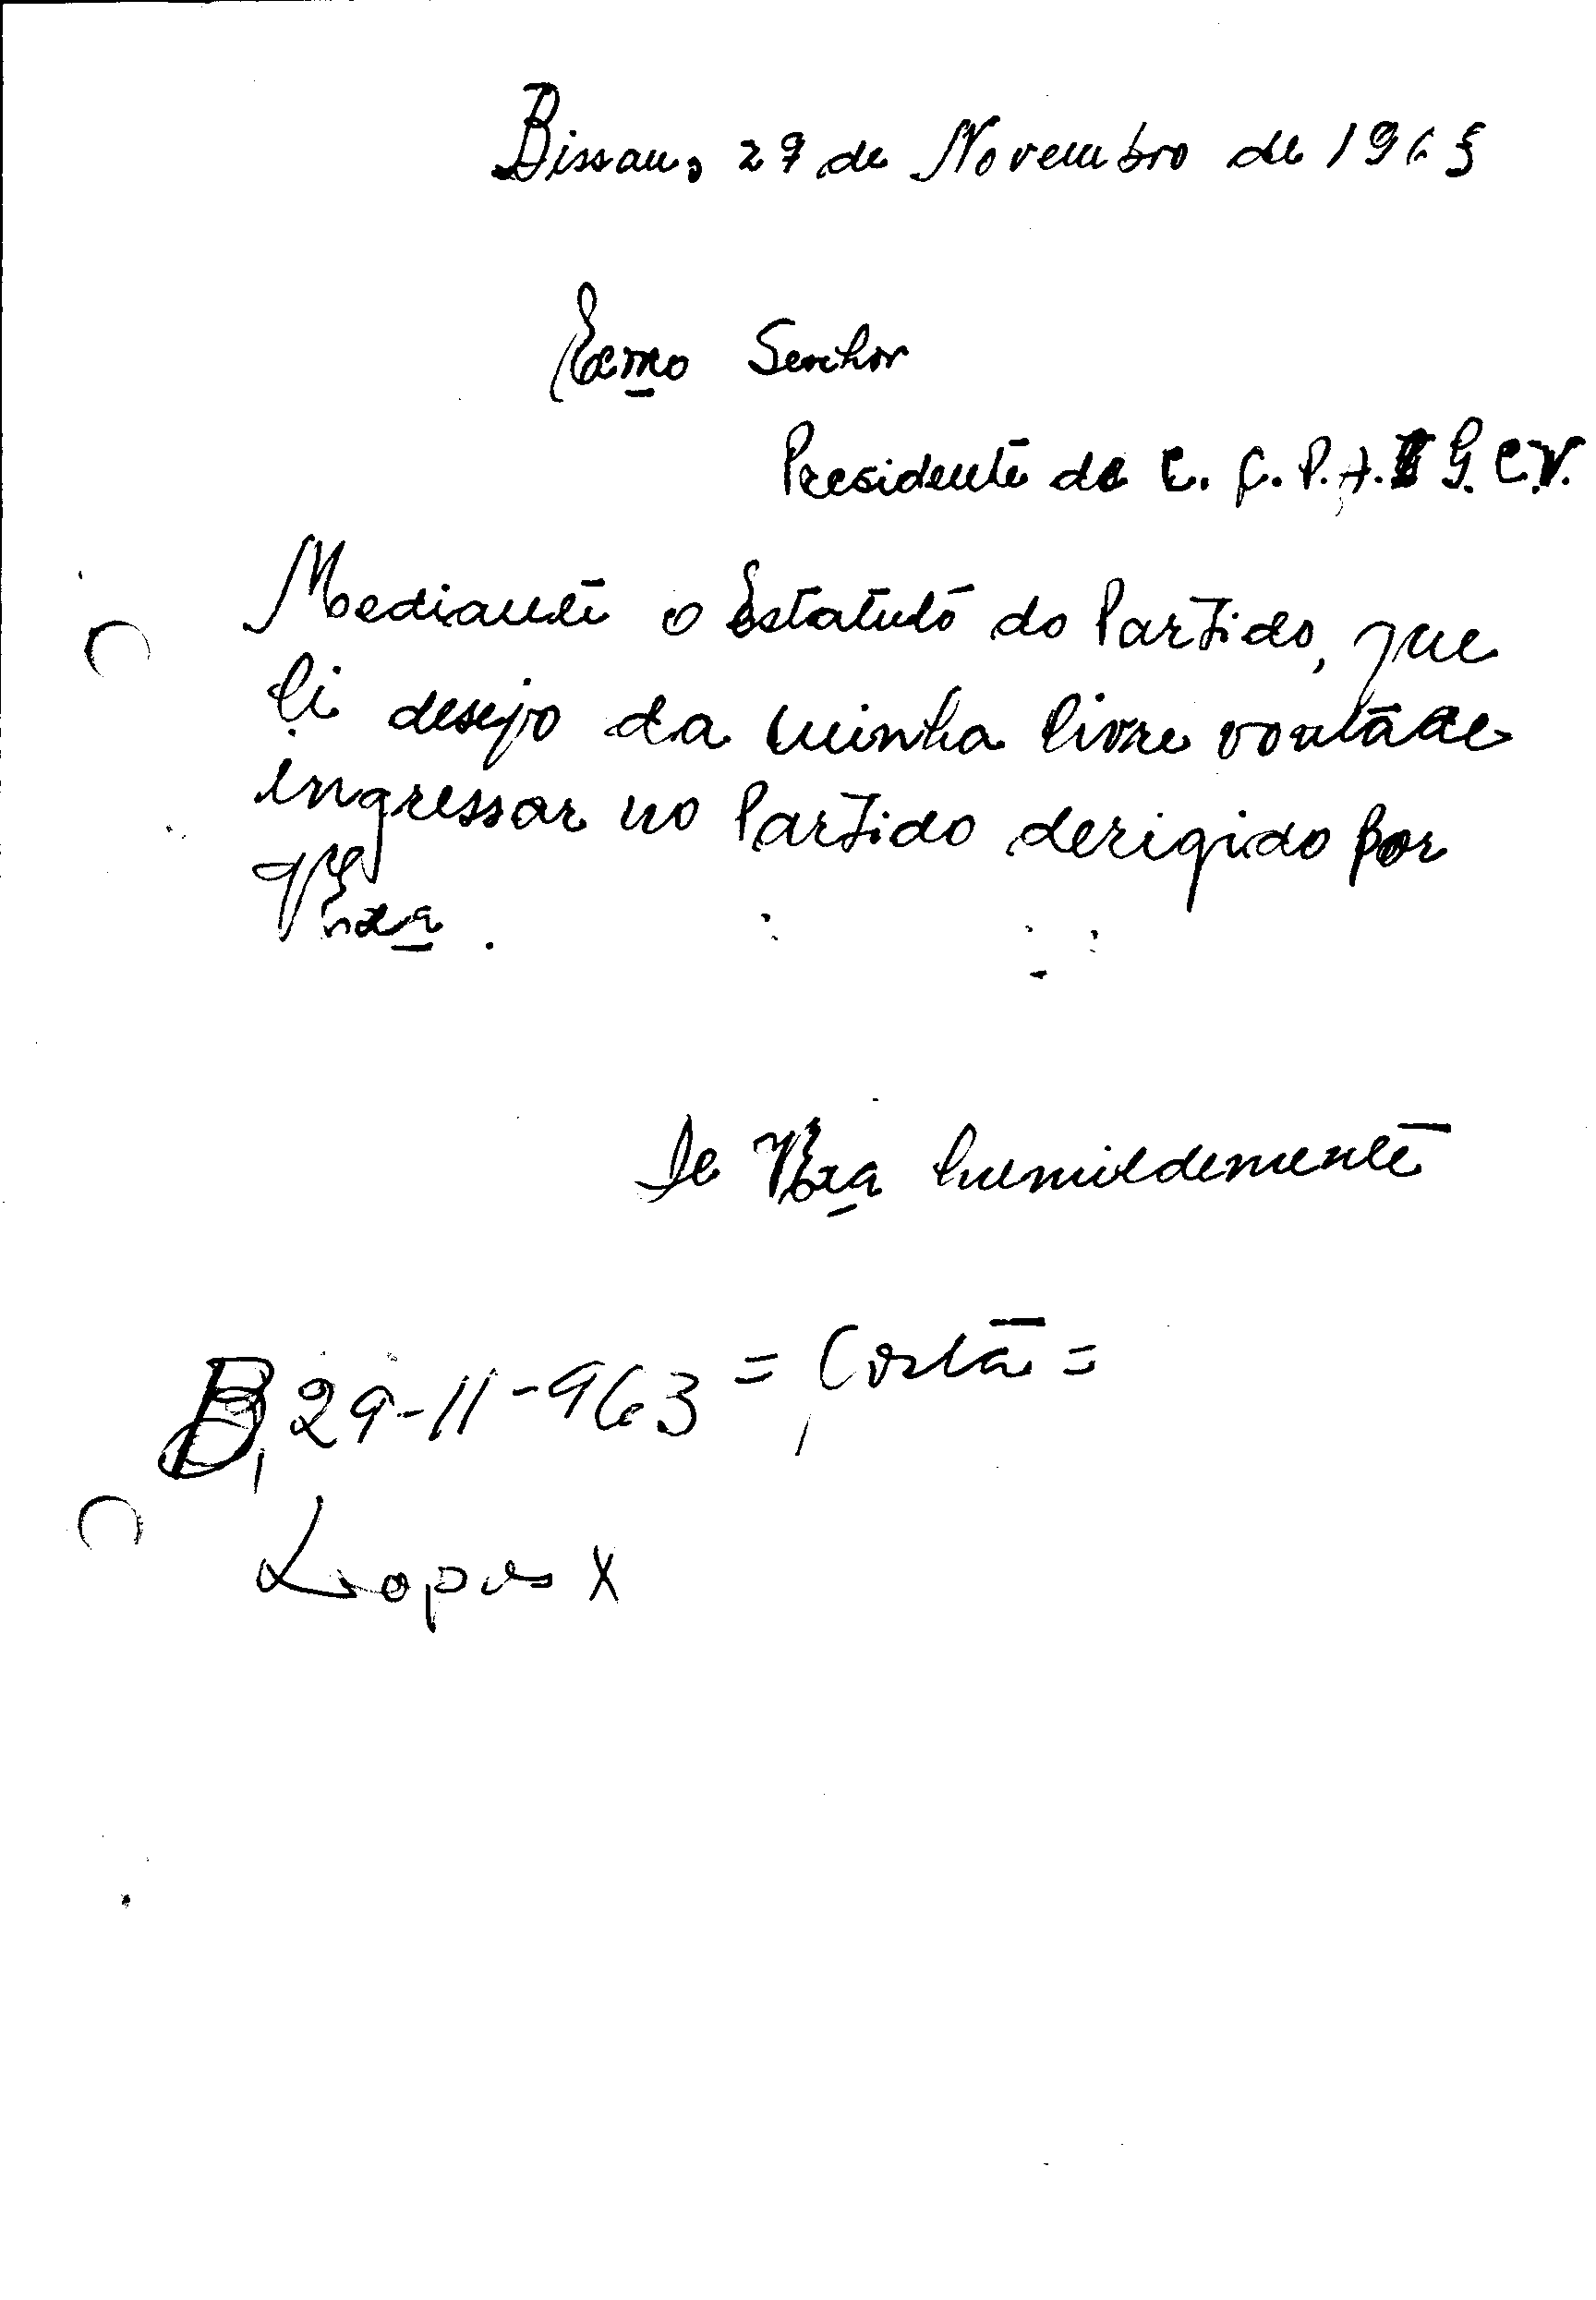 Bissau, 29 de Novembro de 1963
Exmo Senhor
Presidente do C. C. P. A. I G. C.V.
Mediante o Estatuto do Partido, que
li desejo da minha livre vontade
ingressar no Partido derigido por
V Exa.
De V Exa humildemente
B, 29-11-963 = Costa =
Lopes X